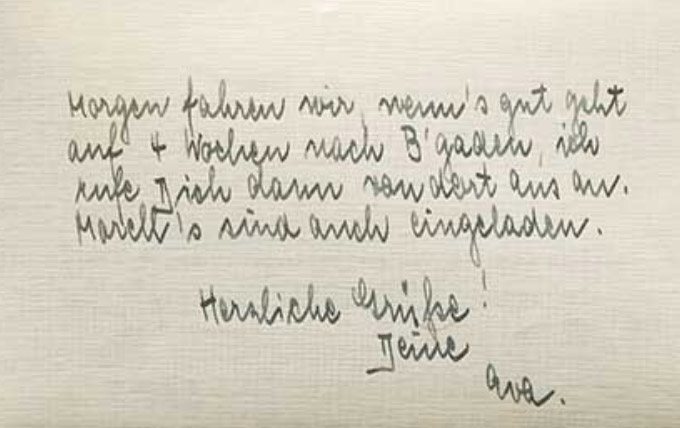 Morgen fahren wir, wenn's gut geht
auf 4 Wochen nach B'gaden, ich
rufe Dich dann von dort aus an.
March's sind auch eingeladen.
Herzliche Grüße!
Deine
Ava.